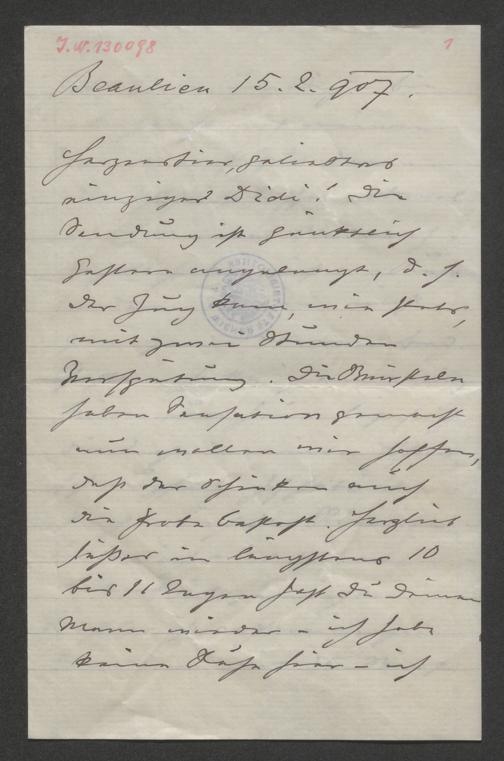 J.N. 130098
1
Beaulieu 15.2.907.
Herzenstier, geliebtes
einziges Didi! Die
Sendung ist pünktlich
gestern angelangt, d. h.
der Zug kam, wie stets,
mit zwei Stunden
Verspätung. Die Würsteln
haben Sensation gemacht
nun wollen wir hoffen,
daß der Schinken auch
die Probe besteht. Herzlieb
süßes in längstens 10
bis 11 Tagen hast Du Deinen
Mann wieder – ich habe
keine Ruhe hier – ich